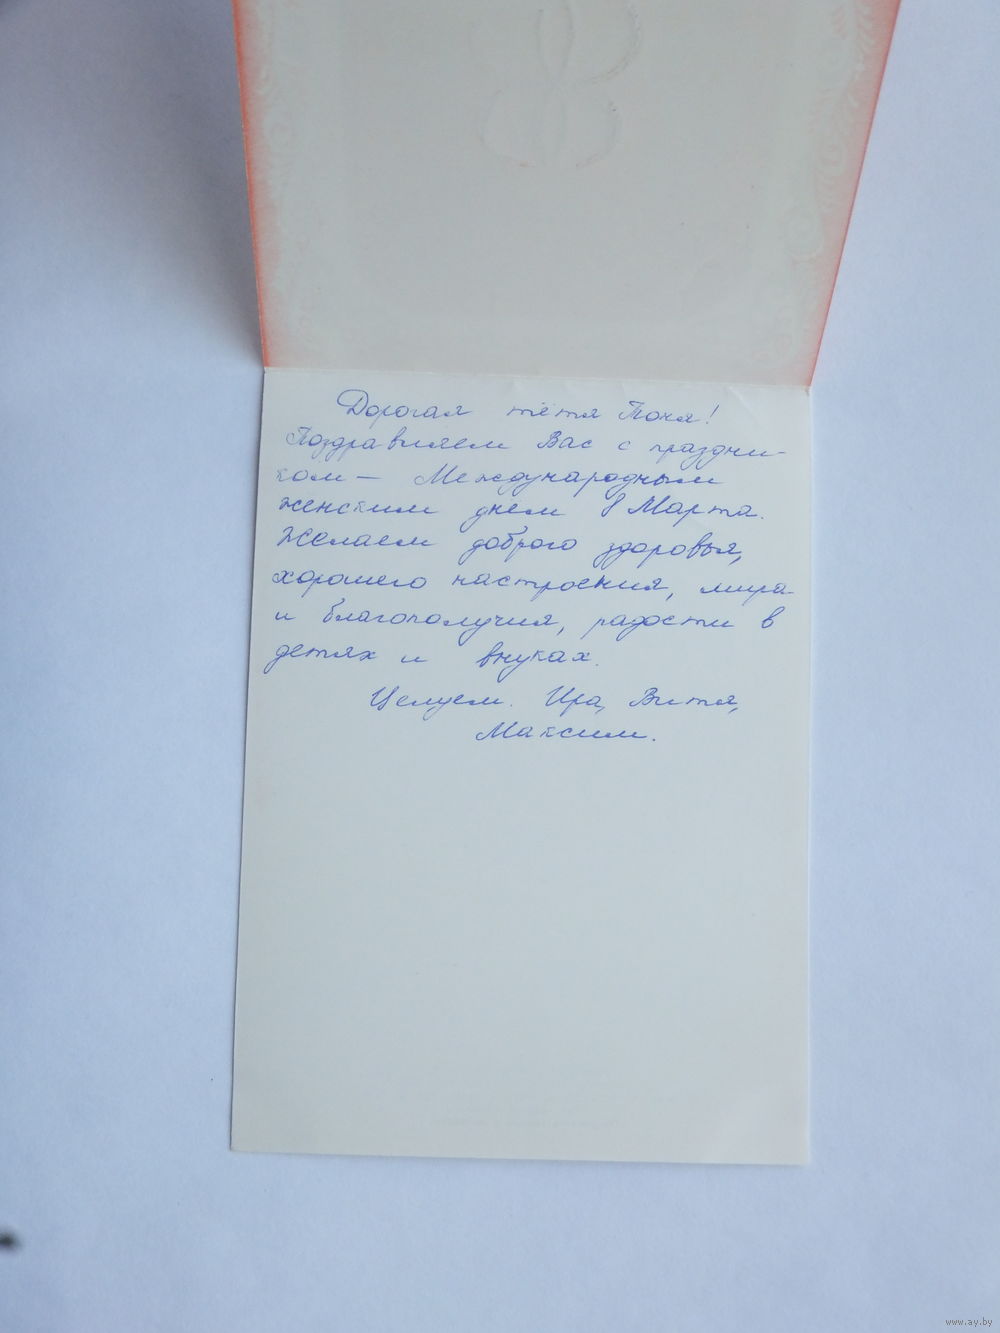 Дорогая тётя Тоня!
Поздравляем Вас с праздни-
ком — Международным
женским днём 8 Марта.
Желаем доброго здоровья,
хорошего настроения, мира
и благополучия, радости в
детях и внуках.
Целуем. Ира, Витя,
Максим.
www.ay.by